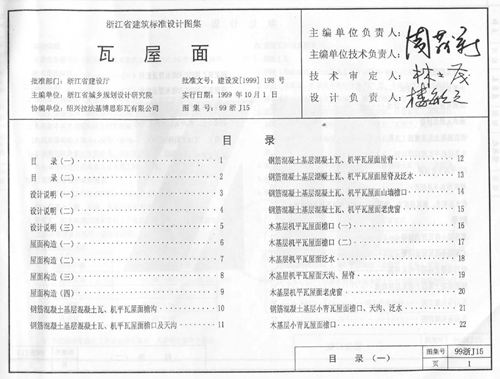 浙江省建筑标准设计图集
瓦屋面
批准部门：浙江省建设厅
批准文号：建设发[1999] 198 号
主编单位：浙江省城乡规划设计研究院
实行日期：1999 年 10 月 1 日
协编单位：绍兴拉法基博思彩瓦有限公司
图 集 号：99 浙 J15
主编单位负责人：
主编单位技术负责人：
技 术 审 定 人：
设 计 负 责 人：
目 录
目 录（一） 1
目 录（二） 2
设计说明（一） 3
设计说明（二） 4
设计说明（三） 5
屋面构造（一） 6
屋面构造（二） 7
屋面构造（三） 8
屋面构造（四） 9
钢筋混凝土基层混凝土瓦、机平瓦屋面檐沟 10
钢筋混凝土基层混凝土瓦、机平瓦屋面檐口及天沟 11
钢筋混凝土基层混凝土瓦、机平瓦屋面屋脊 12
钢筋混凝土基层混凝土瓦、机平瓦屋面屋脊及泛水 13
钢筋混凝土基层混凝土瓦、机平瓦屋面山墙檐口 14
钢筋混凝土基层混凝土瓦、机平瓦屋面老虎窗 15
木基层机平瓦屋面檐口（一） 16
木基层机平瓦屋面檐口（二） 17
木基层机平瓦屋面泛水 18
木基层机平瓦屋面天沟、屋脊 19
木基层机平瓦屋面老虎窗 20
钢筋混凝土基层小青瓦屋面檐口、天沟、泛水 21
木基层小青瓦屋面檐口 22
目 录（一）
图集号 99浙J15
页 1